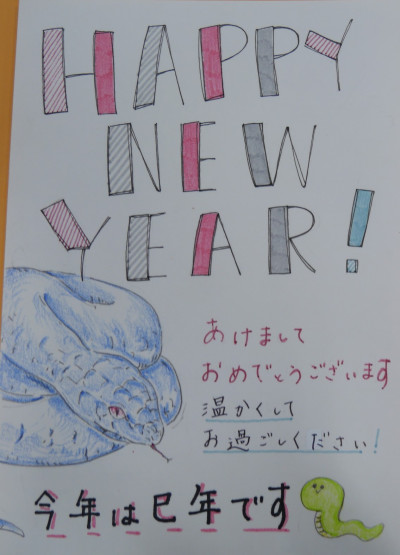 HAPPY
NEW
YEAR!
あけまして
おめでとうございます
温かくして
お過ごしください!
今年は巳年です